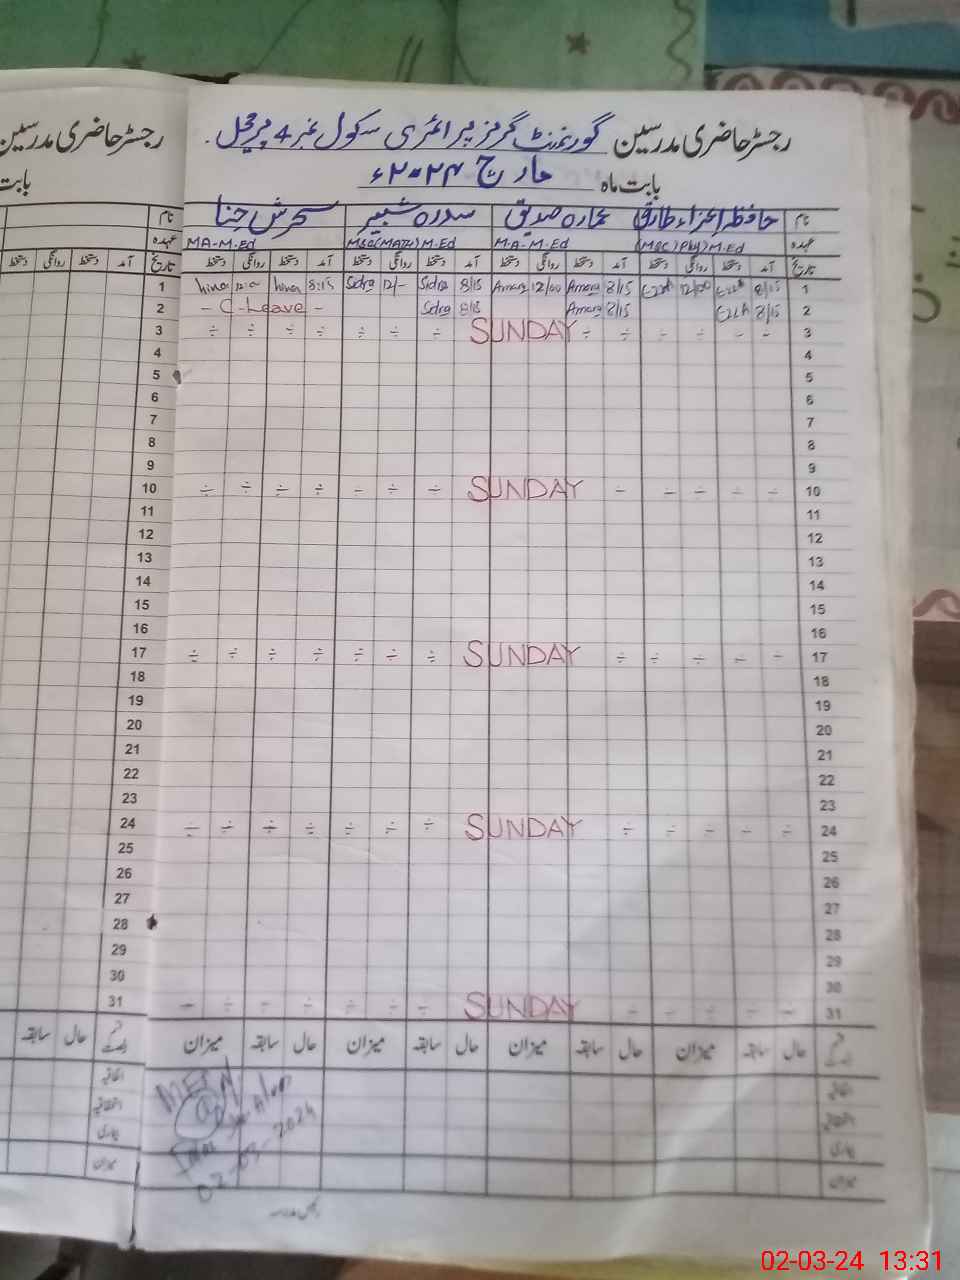 رجسٹر حاضری مدرسین گورنمنٹ گرلز پرائمری سکول نمبر 4 پیرمحل
رجسٹر حاضری مدرسین
بابت ماہ مارچ ۲۰۲۴ء
بابت
نام عمارہ صدیق سدرہ شبیر سحرش حنا
نام
عہدہ (MSC) Phy) M.Ed M.A-M.Ed MSC(MATH) M.Ed MA-M.Ed
عہدہ
تاریخ آمد دستخط روانگی دستخط آمد دستخط روانگی دستخط آمد دستخط روانگی دستخط آمد دستخط روانگی دستخط
تاریخ آمد دستخط روانگی دستخط
1 8/15 12/00 8/15 Amara 12/00 Amara 8/15 Sidra 12/- Sidra 8:15 hina hina 1
2 8/15 8/15 Amara 8/15 Sidra - C-Leave - 2
3 SUNDAY 3
4 4
5 5
6 6
7 7
8 8
9 9
10 SUNDAY 10
11 11
12 12
13 13
14 14
15 15
16 16
17 SUNDAY 17
18 18
19 19
20 20
21 21
22 22
23 23
24 SUNDAY 24
25 25
26 26
27 27
28 28
29 29
30 30
31 SUNDAY 31
حال سابقہ میزان حال سابقہ میزان حال سابقہ میزان حال سابقہ میزان
حال سابقہ
اتفاقیہ
بیماری
میزان
02-03-2024
02-03-24 13:31